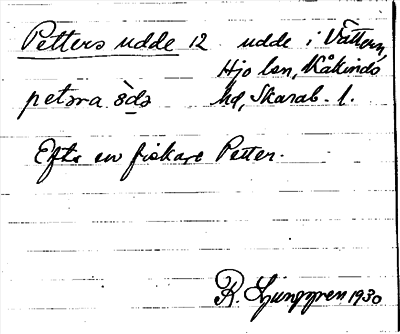 Petters udde 12 udde i Vättern,
Hjo lsn, Kåkinds
petəra ə̀də hd, Skarab. l.
Efter en fiskare Petter.
R. Ljunggren 1930